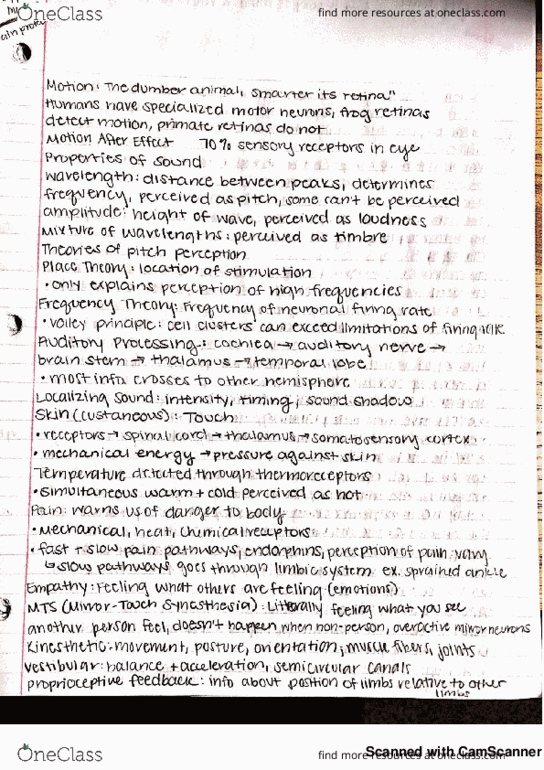 OneClass
find more resources at oneclass.com
Motion: The dumber animal, smarter its retina"
Humans have specialized motor neurons, frog retinas
detect motion, primate retinas do not
Motion After Effect 70% sensory receptors in eye
Properties of sound
wavelength: distance between peaks, determines
frequency, perceived as pitch, some can't be perceived
amplitude: height of wave, perceived as loudness
Mixture of wavelengths: perceived as timbre
Theories of pitch perception
Place Theory: location of stimulation
• only explains perception of high frequencies
Frequency Theory: Frequency of neuronal firing rate
• volley principle: cell clusters can exceed limitations of firing 1K
Auditory Processing: cochlea → auditory nerve →
brain stem → thalamus → temporal lobe
• most info crosses to other hemisphere
Localizing sound: intensity, timing, sound shadow
Skin (custaneous): Touch
• receptors → spinal cord → thalamus → somatosensory cortex
• mechanical energy → pressure against skin
Temperature detected through thermoreceptors
• simultaneous warm + cold perceived as hot
Pain: warns us of danger to body
• Mechanical, heat, chemical receptors
• fast + slow pain pathways, endorphins, perception of pain vary
↳ slow pathways goes through limbic system ex. sprained ankle
Empathy: Feeling what others are feeling (emotions)
MTS (Mirror-Touch Synesthesia): Litterally feeling what you see
another person feel, doesn't happen when non-person, overactive mirror neurons
Kinesthetic: movement, posture, orientation, muscle fibers, joints
vestibular: balance + acceleration, semicircular canals
proprioceptive feedback: info about position of limbs relative to other
limbs
OneClass
find more resources at oneclass.com
Scanned with CamScanner